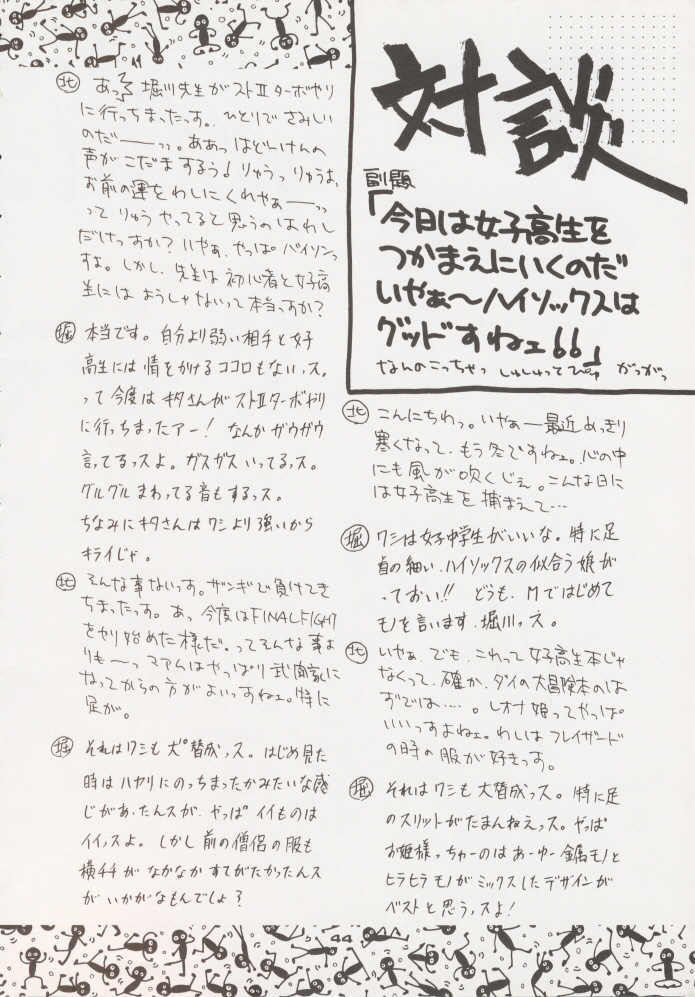 対談
副題
「今日は女子高生を
つかまえにいくのだ
いやぁ〜ハイソックスは
グッドすねェ66」
なんのこっちゃっ しゅしゅってぴゅ がっがっ
北 こんにちわっ。いやぁー最近めっきり
寒くなって、もう冬ですねェ。心の中
にも風が吹くじぇ。こんな日に
は女子高生を捕まえて…
堀 ワシは女子中学生がいいな。特に足
首の細い、ハイソックスの似合う娘が
っておい!! どうも、Mではじめて
モノを言います、堀川っス。
北 いやぁ、でも、これって女子高生本じゃ
なくって、確か、ダイの大冒険本のは
ずでは…‥。レオナ姫ってやっぱ
いいっすよねェ。わしはフレイザード
の時の服が好きっす。
堀 それはワシも大賛成っス。特に足
のスリットがたまんねえっス。やっぱ
お姫様っちゅーのはあーゆー金属モノと
ヒラヒラモノがミックスしたデザインが
ベストと思うっスよ!
北 あっ 堀川先生がストⅡターボやり
に行っちまったっす。ひとりでさみしい
のだ――ッ。ああっはどいけんの
声がこだまするぅ! りゅうっりゅうっ、
お前の運をわしにくれやぁ――ッ
ってりゅうやってると思うのはわし
だけっすか? いやぁ、やっぱバイソンっ
すよ。しかし、先生は初心者と女子高
生にはようしゃないって本当っすか?
堀 本当です。自分より弱い相手と女子
高生には情をかけるココロもないっス。
って今度はキタさんがストⅡターボやり
に行っちまったアー! なんかガウガウ
言ってるっスよ。ガスガスいってるっス。
グルグルまわってる音もするっス。
ちなみにキタさんはワシより強いから
キライじゃ。
北 そんな事ないっす。ザンギで負けてき
ちまったっす。あっ今度はFINALFIGHT
をやり始めた様だ。ってそんな事よ
りも―っマァムはやっぱり武闘家に
なってからの方がよいっすねェ。特に
足が。
堀 それはワシも大賛成っス。はじめ見た
時はハヤリにのっちまったかみたいな感
じがあったんスが、やっぱイイものは
イイっスよ。しかし前の僧侶の服も
横チチがなかなかすてがたかったんス
がいかがなもんでしょ?
44